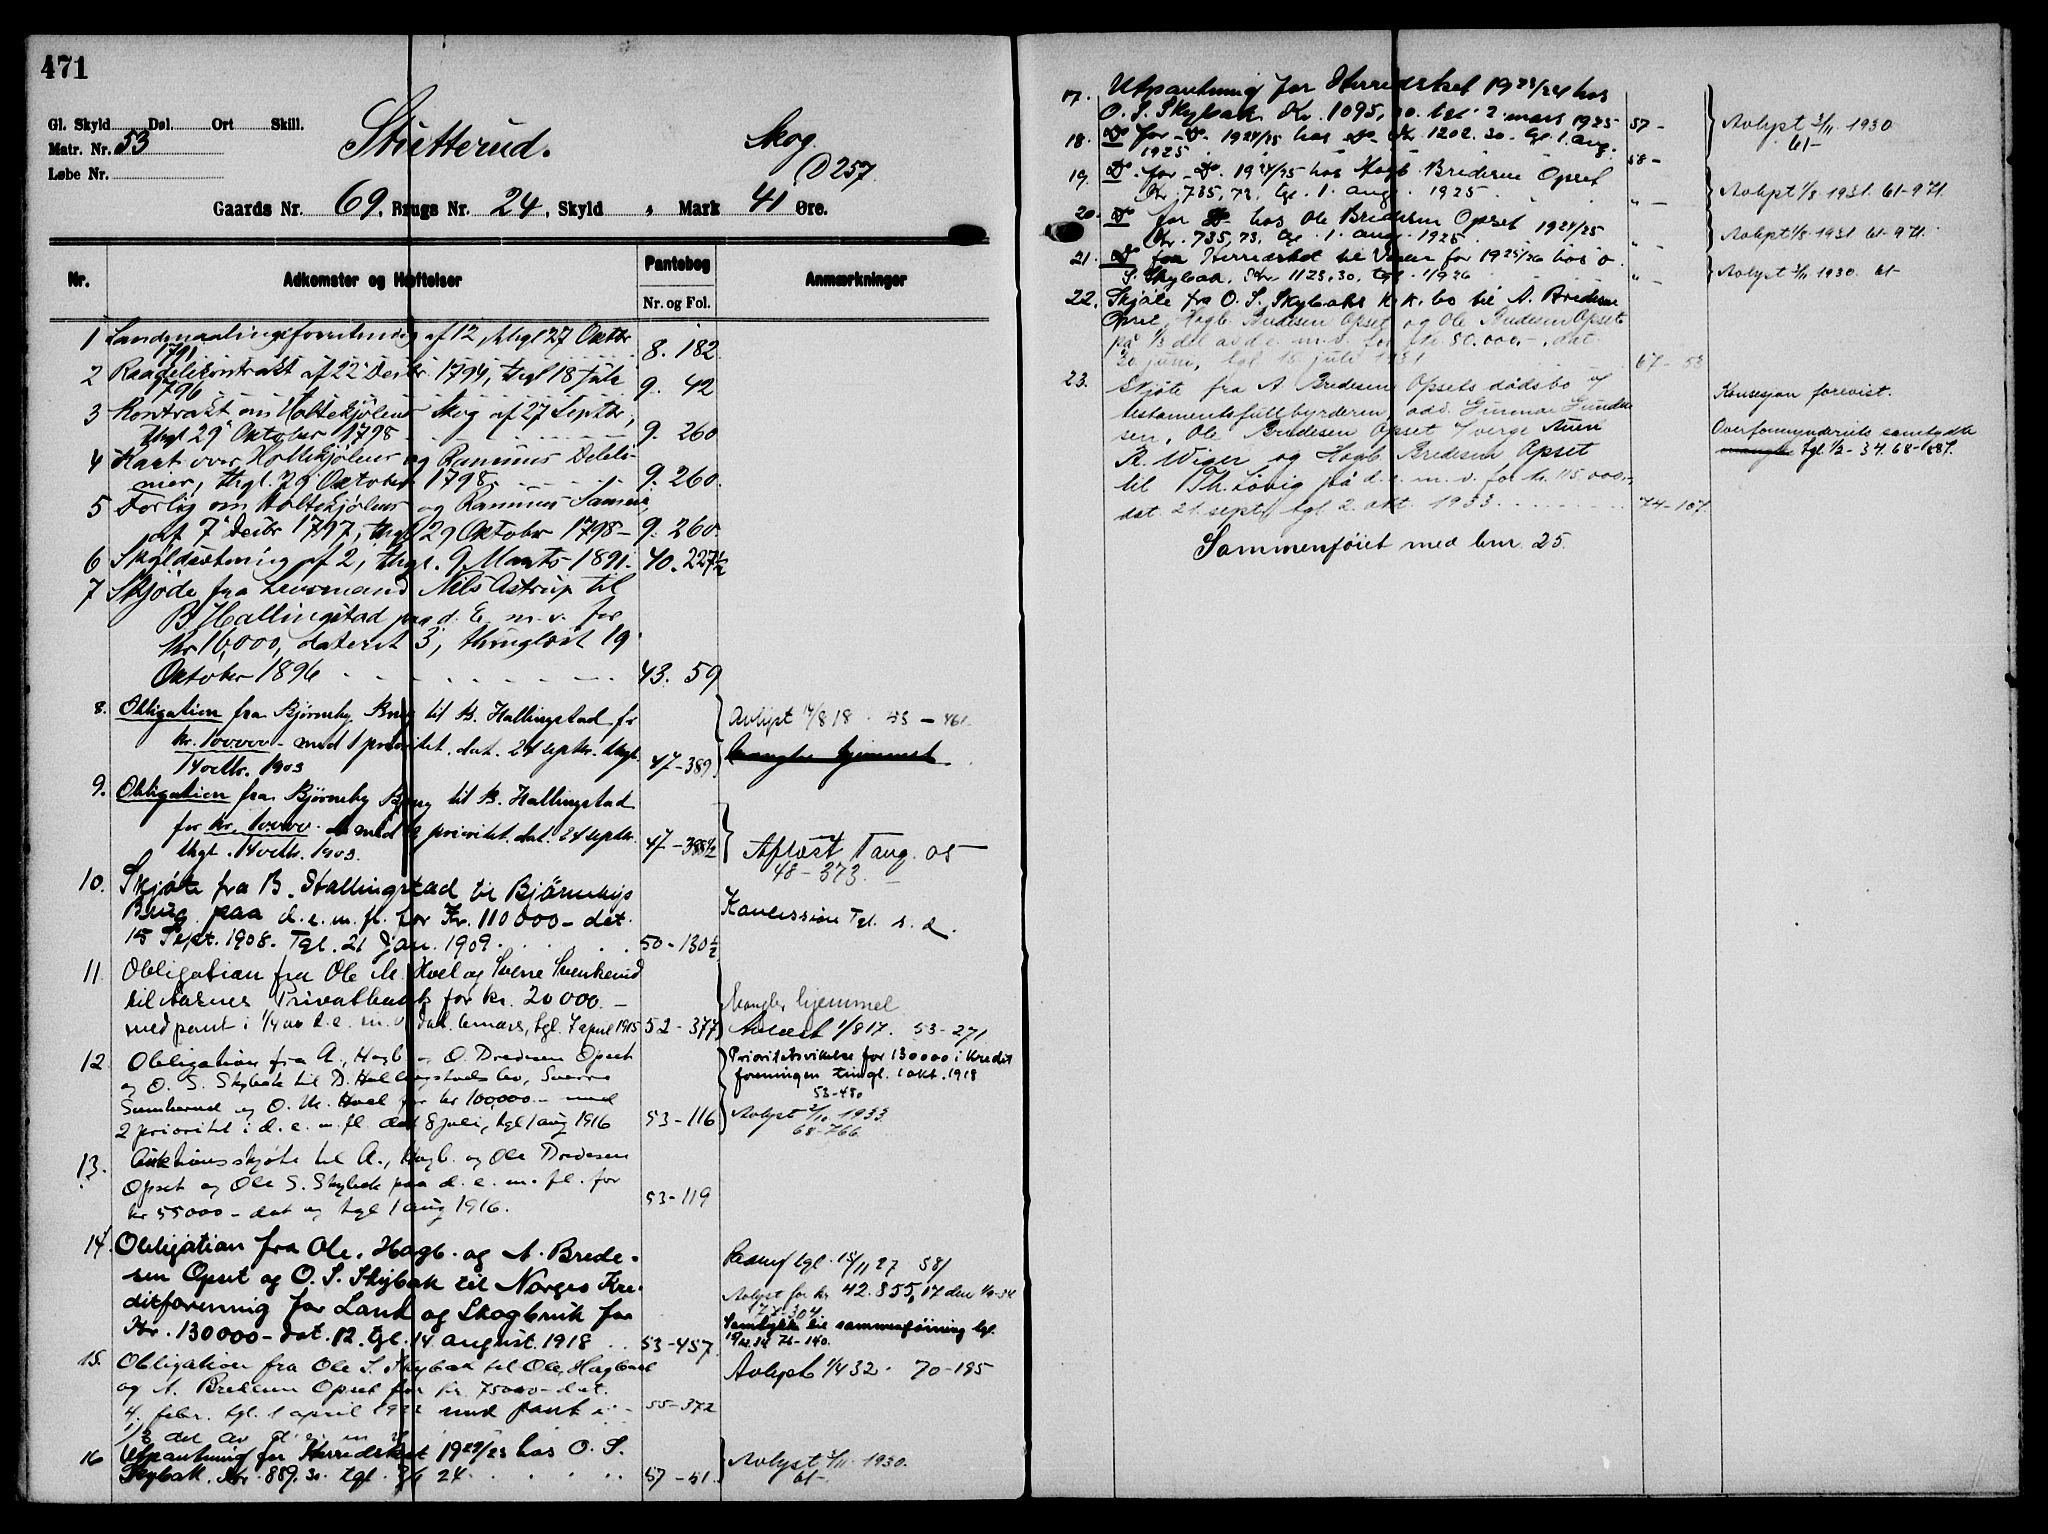 471
Gl. Skyld Dal. Ort Skill.
Matr. Nr. 53
Løbe Nr.
Stutterud.
Skog
D 257
Gaards Nr. 69, Brugs Nr. 24, Skyld „ Mark 41 Øre.
Nr. Adkomster og Hæftelser Pantebog Anmærkninger
Nr. og Fol.
1 Landmaalingsforretning af 12, thgl 27 Oktbr
1791 8. 182
2 Kontrakt af 22 Decbr. 1794, thgl 18 Juli
1796 9. 42
3 Kontrakt om Holtekjølens Skog af 27 Septbr,
thgl 29 Oktober 1798 9. 260
4 Kart over Holtekjølens og Ramuns Deleli-
nier, thgl. 29 Oktober 1798 9. 260.
5 Forlig om Holtekjølens og Ramuns Samme
af 7 Decbr 1797, thgl 29 Oktober 1798 - 9. 260.
6 Skyldsætning af 2, thgl. 9 Marts 1891. 40. 227½
7 Skjøde fra Lensmand Nils Astrup til
B. Hallingstad paa d. E. m. v. for
Kr 16,000, dateret 3, thinglæst 19
Oktober 1896 43. 59
8. Obligation fra Bjørneby Brug til B. Hallingstad for
kr. 100000 - med 1 prioritet. dat. 24 septbr. thgl.
14 octbr. 1903 47-389
Avlyst 14/8 18. 53-461.
Mangler hjemmel
9. Obligation fra Bjørneby Brug til B. Hallingstad
for kr. 10000 - med 2 prioritet. dat. 24 septbr.
thgl. 14 octbr. 1903. 47-388½
Aflæst 1 aug. 05
48-373.
10. Skjøte fra B. Hallingstad til Bjørnebys
Brug paa d. e. m. fl. for Kr. 110000 - dat.
15 Sept. 1908. Tgl. 21 Jan. 1909 50-130½
Koncession Tgl. s. d.
11. Obligation fra Ole M. Hvel og Sverre Svenkerud
til Aarnes Privatbank for kr. 20000. -
med pant i 1/4 av d. e. m. v. dat. mars, tgl. 7 april 1915 52-377
Mangler hjemmel
Avlæst 1/8 17. 53-271
12 Obligation fra A., Hagb. og O. Bredesen Opset
og O. S. Skybak til B. Hallingstads bo, Sverre
Svenkerud og O. M. Hvel for kr 100,000 - med
2 prioritet i d. e. m. fl. dat 8 juli, tgl 1 aug 1916 53-116
Prioritetsvikelse for 130000 i Kredit
foreningen tingl. 1 okt. 1918
53-480
Avlyst 2/10 1933.
68-766
13. Auktionsskjøte til A., Hagb. og Ole Bredesen
Opset og Ole S. Skybak paa d. e. m. fl. for
kr 55000 - dat og tgl 1 aug 1916. 53-119
14. Obligation fra Ole, Hagb. og A. Brede-
sen Opset og O. S. Skybak til Norges Kre-
ditforening for Land og Skogbruk for
Kr. 130000 - dat. 12. tgl. 14 august. 1918 53-457
tgl. 15/11 27 58/
Avlyst for kr 42.855,17 den
77-304
Samtykke til sammenføining tgl.
76-140.
15. Obligation fra Ole S. Skybak til Ole, Hagbart
og A. Bredesen Opset for kr. 75000 - dat.
4. febr. tgl. 1 april 1922 med pant i 55-372
1/3 del av d. e. m. v.
Avlyst 1/4 32. 70-195
16 Utpantning for Herredskat 1922/23 hos O. S.
Skybak. Kr. 889.30 tgl. 24 57-51.
Avlyst 3/11 1930.
61-
17. Utpantning for Herredskat 1923/24 hos
O. S. Skybak Kr. 1095,30. tgl. 2 mars 1925 57-
Avlyst 3/11 1930
61-
18. Do for Do 1924/25 hos Do Kr. 1202.30. tgl 1. aug.
1925 58-
19. Do. for Do. 1924/25 hos Hagb. Bredesen Opset
Kr. 735,73, tgl. 1. aug. 1925 „ -
Avlyst 1/8 1931. 61-971.
20. Do for Do hos Ole Bredesen Opset 1924/25
Kr. 735,73, tgl. 1. aug. 1925 „ -
Avlyst 1/8 1931 61-971.
21. Do for Herredskat til Vaaler for 1925/26 hos O.
S. Skybak. Kr. 1123.30, tgl. 1926 „ -
Avlyst 3/11 1930. 61-
22. Skjøte fra O. S. Skybaks k.k. bo til A. Bredesen
Opset, Hagb. Bredesen Opset og Ole Bredesen Opset
på 1/3 del av d. e. m. v. for kr. 50.000 -, dat.
30 juni, tgl 15 juli 1931 67-53
23. Skjøte fra A Bredesen Opsets dødsbo v/
testamentsfullbyrderen, adv. Gunnar Gundersen
sen, Ole Bredesen Opset v/ verge Auen
R. Wiger og Hagb. Bredesen Opset
til Th. Løvig på d. e. m. v. for kr. 115.000,-
dat. 21. sept, tgl 2. okt. 1933 74-107.
Konsesjon forevist.
Overformynderiets samtykke
mangler tgl. 1/2-34. 68-887.
Sammenføiet med bnr. 25.